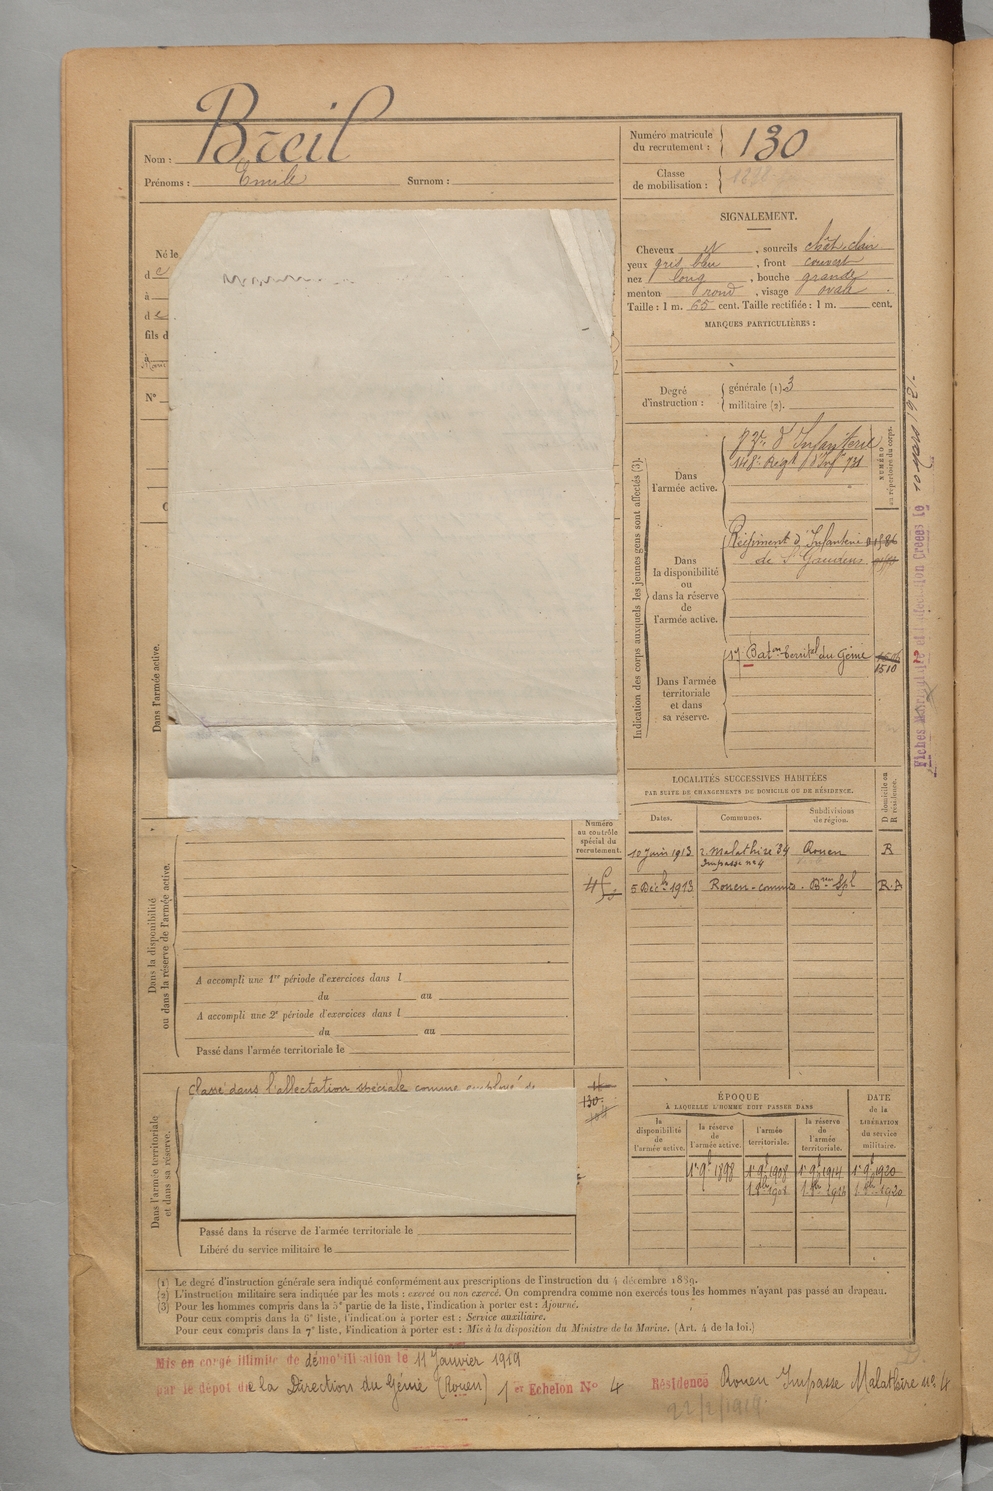 Nom : Breil
Prénoms : Emile Surnom :
Numéro matricule du recrutement : 130
Classe de mobilisation :
Né le
d
à
d
fils d
à
N°
SIGNALEMENT.
Cheveux id , sourcils chât. clair
yeux gris bleu , front couvert
nez long , bouche grande
menton rond , visage ovale .
Taille : 1 m. 65 cent. Taille rectifiée : 1 m. cent.
MARQUES PARTICULIÈRES :
Degré d'instruction : générale (1) 3
militaire (2).
Indication des corps auxquels les jeunes gens sont affectés (3).
NUMÉRO au répertoire du corps.
Dans l'armée active.
d'Infanterie
148e Régt d'Infie 731
Dans la disponibilité ou dans la réserve de l'armée active.
Régiment d'Infanterie
de St Gaudens
Dans l'armée territoriale et dans sa réserve.
17 Baton territal du Génie
1510
Fiches 10 mars 1921
LOCALITÉS SUCCESSIVES HABITÉES
PAR SUITE DE CHANGEMENTS DE DOMICILE OU DE RÉSIDENCE.
Dates. Communes. Subdivisions de région. D domicile ou R résidence.
10 Juin 1913 r. Malathire 34 Rouen R
Impasse no 4
5 Déc. 1913 Rouen - Spl R.D
Dans l'armée active.
Numéro au contrôle spécial du recrutement.
Dans la disponibilité ou dans la réserve de l'armée active.
A accompli une 1re période d'exercices dans l
du au
A accompli une 2e période d'exercices dans l
du au
Passé dans l'armée territoriale le
Dans l'armée territoriale et dans sa réserve.
Classé dans l'affectation spéciale comme employé de
130
Passé dans la réserve de l'armée territoriale le
Libéré du service militaire le
ÉPOQUE
À LAQUELLE L'HOMME DOIT PASSER DANS
DATE de la LIBÉRATION du service militaire.
la disponibilité de l'armée active. la réserve de l'armée active. l'armée territoriale. la réserve de l'armée territoriale.
1er 9bre 1898 1er 9bre 1908 1er 9bre 1914 1er 9bre 1920
1908 1914 1920
(1) Le degré d'instruction générale sera indiqué conformément aux prescriptions de l'instruction du 4 décembre 1889.
(2) L'instruction militaire sera indiquée par les mots : exercé ou non exercé. On comprendra comme non exercés tous les hommes n'ayant pas passé au drapeau.
(3) Pour les hommes compris dans la 5e partie de la liste, l'indication à porter est : Ajourné.
Pour ceux compris dans la 6e liste, l'indication à porter est : Service auxiliaire.
Pour ceux compris dans la 7e liste, l'indication à porter est : Mis à la disposition du Ministre de la Marine. (Art. 4 de la loi.)
Mis en congé illimité de démobilisation le 11 Janvier 1919
par le dépôt de la Direction du Génie (Rouen) 1er Echelon No 4 Résidence Rouen Impasse Malathire no 4
22/2/1919